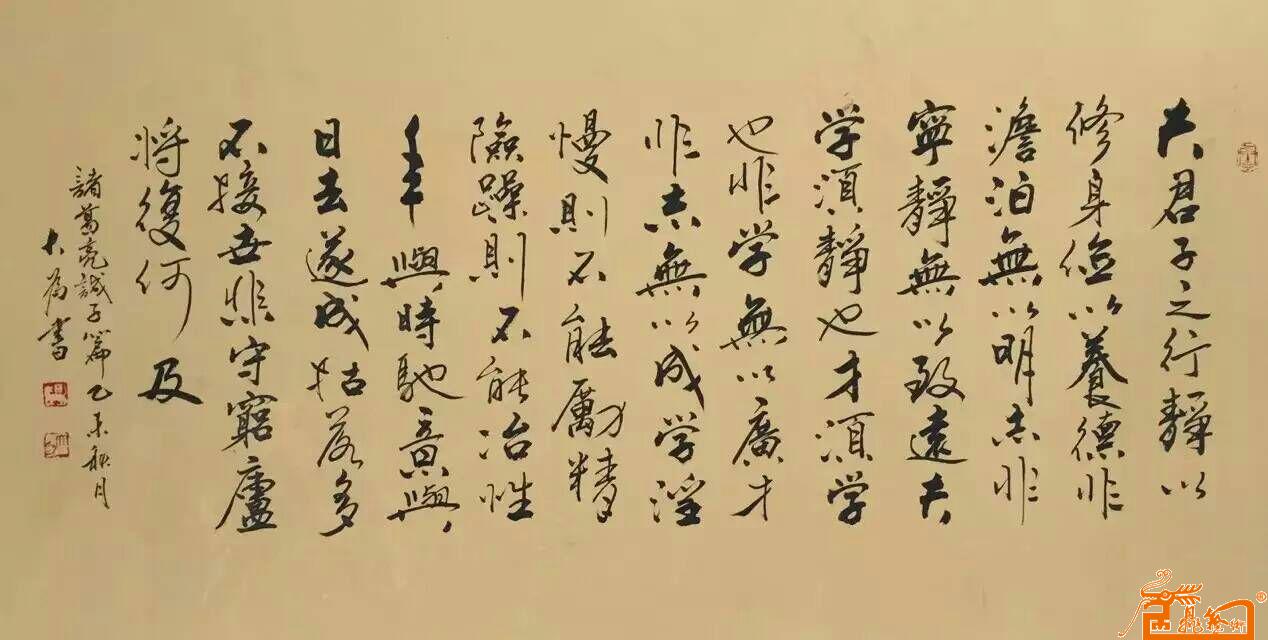 夫君子之行靜以
修身儉以養德非
澹泊無以明志非
寧靜無以致遠夫
学須靜也才須学
也非学無以廣才
非志無以成学淫
慢則不能勵精
險躁則不能冶性
年與時馳意與
日去遂成枯落多
不接世非守窮廬
将復何及
諸葛亮誡子篇乙未秋月
大為書